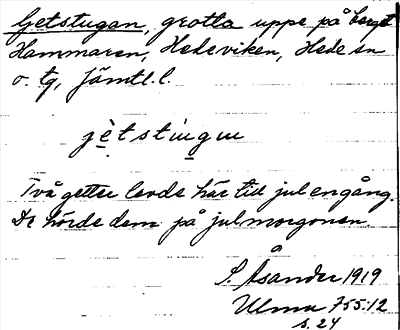 Getstugan, grotta uppe på berget
Hammaren, Hedeviken, Hede sn
o. tg, Jämtl. l.
jètstùgun
Två getter levde här tid jul engång.
De hörde dem på julmorgonen.
S. Åsander 1919
Ulma 755:12
s. 24